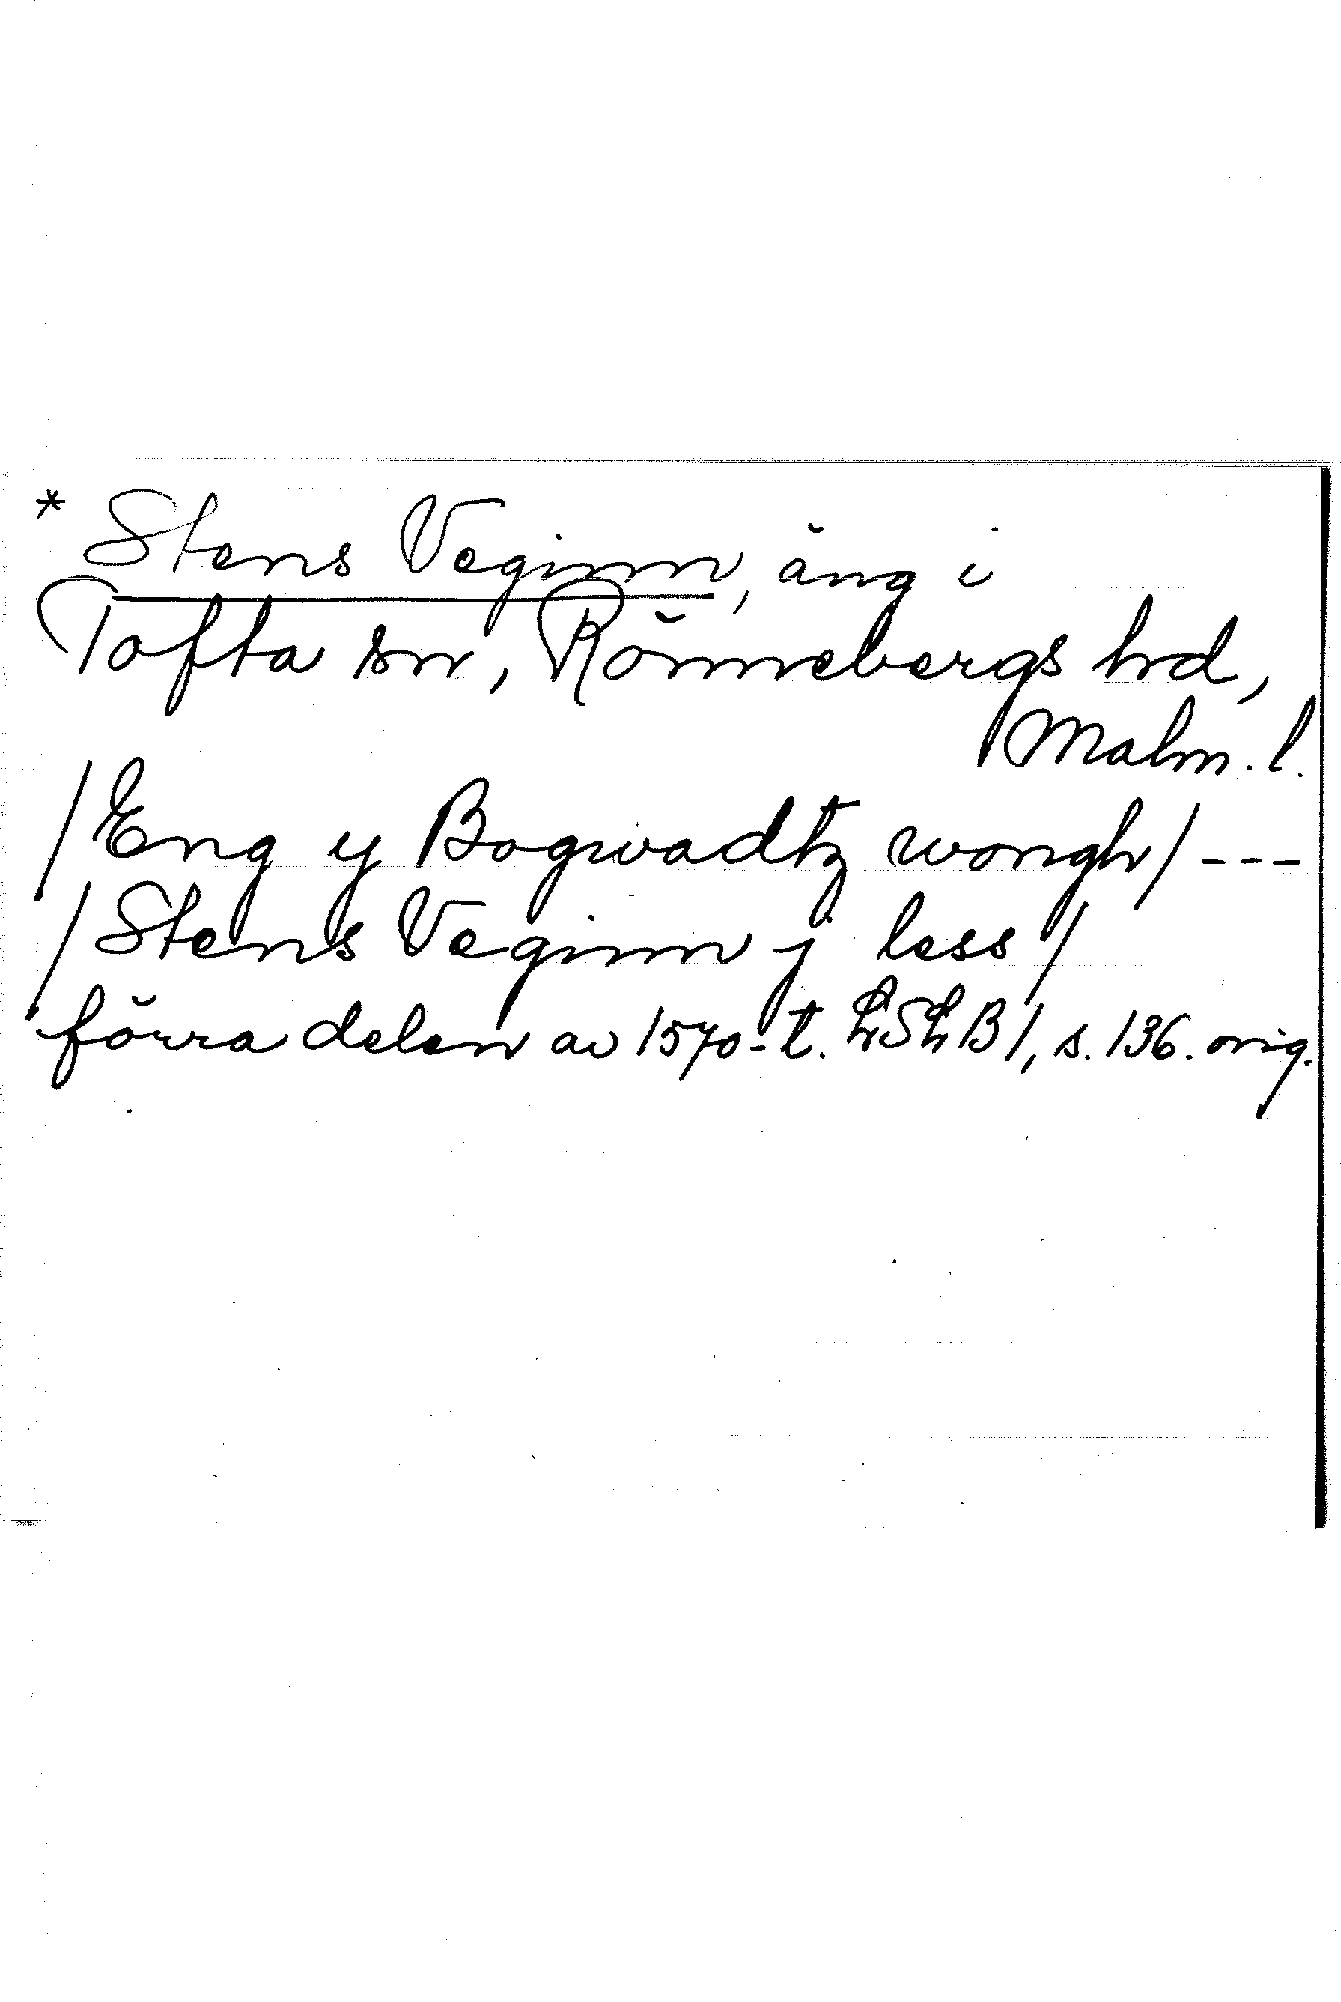 * Stens Veginn, äng i
Tofta sn, Rönnebergs hrd,
Malm. l.
/Eng y Bogwadtz wongh/ ---
/Stens Veginn j less/
förra delen av 1570-t. LSLB 1, s. 136. orig.